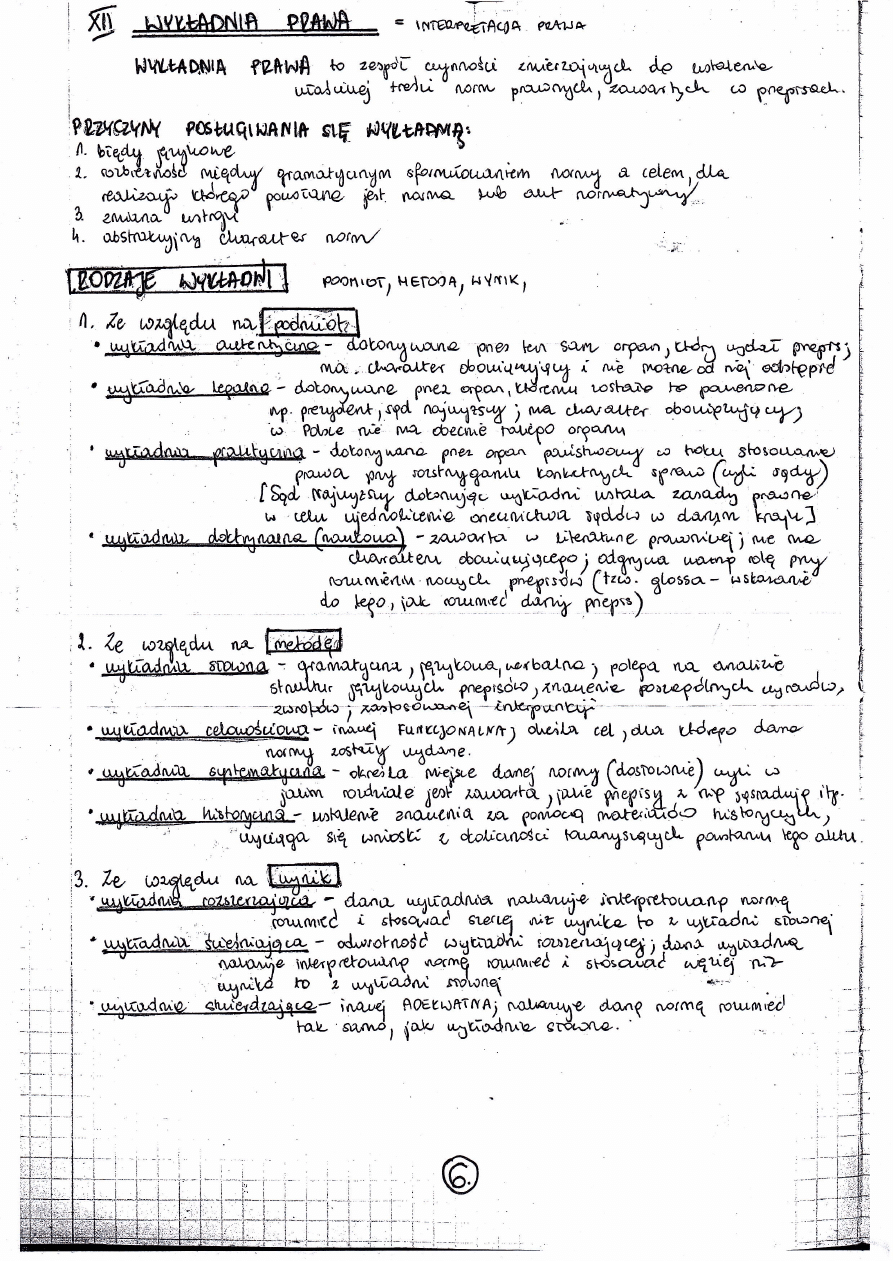 XII WYKŁADNIA PRAWA = INTERPRETACJA PRAWA
WYKŁADNIA PRAWA to zespół czynności zmierzających do ustalenia
właściwej treści norm prawnych, zawartych w przepisach.
PRZYCZYNY POSŁUGIWANIA SIĘ WYKŁADNIĄ:
1. błędy językowe
2. rozbieżność między gramatycznym sformułowaniem normy a celem, dla
realizacji którego powołana jest norma lub akt normatywny
3. zmiana ustroju
4. abstrakcyjny charakter norm
RODZAJE WYKŁADNI PODMIOT, METODA, WYNIK,
1. Ze względu na podmiot:
• wykładnia autentyczna – dokonywana przez ten sam organ, który wydał przepis;
ma charakter obowiązujący i nie można od niej odstąpić
• wykładnia legalna – dokonywana przez organ, któremu zostało to powierzone
np. prezydent, sąd najwyższy; ma charakter obowiązujący;
w Polsce nie ma obecnie takiego organu
• wykładnia praktyczna – dokonywana przez organ państwowy w toku stosowania
prawa przy rozstrzyganiu konkretnych spraw (czyli sądy)
[Sąd Najwyższy dokonując wykładni ustala zasady prawne
w celu ujednolicenia orzecznictwa sądów w danym kraju]
• wykładnia doktrynalna (naukowa) – zawarta w literaturze prawniczej; nie ma
charakteru obowiązującego; odgrywa ważną rolę przy
rozumieniu nowych przepisów (tzw. glossa – wskazanie
do tego, jak rozumieć dany przepis)
2. Ze względu na metodę
• wykładnia słowna – gramatyczna, językowa, werbalna; polega na analizie
struktur językowych przepisów, znaczenie poszczególnych wyrazów,
zwrotów; zastosowanej interpunkcji
• wykładnia celowościowa – inaczej FUNKCJONALNA; określa cel, dla którego dane
normy zostały wydane.
• wykładnia systematyczna – określa miejsce danej normy (dosłownie) czyli w
jakim rozdziale jest zawarta, jakie przepisy z nią sąsiadują itp.
• wykładnia historyczna – ustalenie znaczenia za pomocą materiałów historycznych,
wyciąga się wnioski z okoliczności towarzyszących powstaniu tego aktu.
3. Ze względu na wynik
• wykładnia rozszerzająca – dana wykładnia nakazuje interpretowaną normę
rozumieć i stosować szerzej niż wynika to z wykładni słownej
• wykładnia ścieśniająca – odwrotność wykładni rozszerzającej; dana wykładnia
nakazuje interpretowaną normę rozumieć i stosować węziej niż
wynika to z wykładni słownej
• wykładnia stwierdzająca – inaczej ADEKWATNA; nakazuje daną normę rozumieć
tak samo, jak wykładnia słowna.
6.